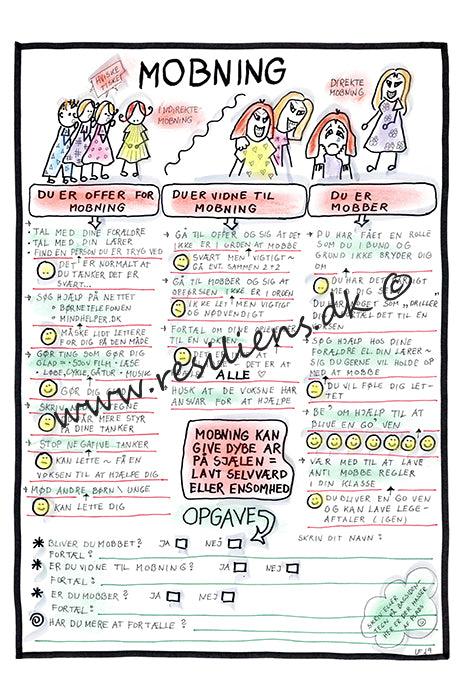 MOBNING
HVISKE
TISKE
INDIREKTE
MOBNING
DIREKTE
MOBNING
DU ER OFFER FOR
MOBNING
TAL MED DINE FORÆLDRE
TAL MED DIN LÆRER
FIND EN PERSON DU ER TRYG VED
DET ER NORMALT AT
DU TÆNKER DET ER
SVÆRT...
SØG HJÆLP PÅ NETTET
BØRNETELEFONEN
MINDHELPER.DK
MÅSKE LIDT LETTERE
FOR DIG PÅ DEN MÅDE
GØR TING SOM GØR DIG
GLAD = SJOV FILM - LÆSE
LØBE, CYKLE, GÅTUR - MUSIK
GØR DIG
SKRIV
MERE STYR
PÅ DINE TANKER
STOP NEGATIVE TANKER
KAN LETTE ~ FÅ EN
VOKSEN TIL AT HJÆLPE DIG
MØD ANDRE BØRN / UNGE
KAN LETTE DIG
DU ER VIDNE TIL
MOBNING
GÅ TIL OFFER OG SIG AT DET
IKKE ER I ORDEN AT MOBBE
SVÆRT MEN VIGTIGT ~
GÅ EVT. SAMMEN 2+2
GÅ TIL MOBBER OG SIG AT
IKKE ER I ORDEN
IKKE LET MEN VIGTIGT
OG NØDVENDIGT
FORTÆL OM DINE
TIL EN
DET ER
DET ER AT
ALLE
HUSK AT DE VOKSNE HAR
ANSVAR FOR AT HJÆLPE
MOBNING KAN
GIVE DYBE AR
PÅ SJÆLEN =
LAVT SELVVÆRD
ELLER ENSOMHED
DU ER
MOBBER
DU HAR FÅET EN ROLLE
SOM DU I BUND OG
GRUND IKKE BRYDER DIG
OM
DU HAR DET DÅRLIGT
MED DIG
SOM „DRILLER
FORTÆL DET TIL EN
SØG HJÆLP HOS DINE
FORÆLDRE EL DIN LÆRER ~
SIG DU GERNE VIL HOLDE OP
MED AT MOBBE
DU VIL FØLE DIG LET-
TET
BE' OM HJÆLP TIL AT
BLIVE EN GO' VEN
VÆR MED TIL AT LAVE
ANTI MOBBE REGLER
I DIN KLASSE
DU BLIVER EN GO VEN
OG KAN LAVE LEGE-
AFTALER (IGEN)
SKRIV DIT NAVN:
www.resiliens.dk ©
OPGAVE
BLIVER DU MOBBET? JA NEJ
FORTÆL:
ER DU VIDNE TIL MOBNING? JA NEJ
FORTÆL:
ER DU MOBBER? JA NEJ
FORTÆL:
HAR DU MERE AT FORTÆLLE?
SKRIV ELLER
TEGN PÅ BAGSIDEN
HER HVIS DER MANGLER